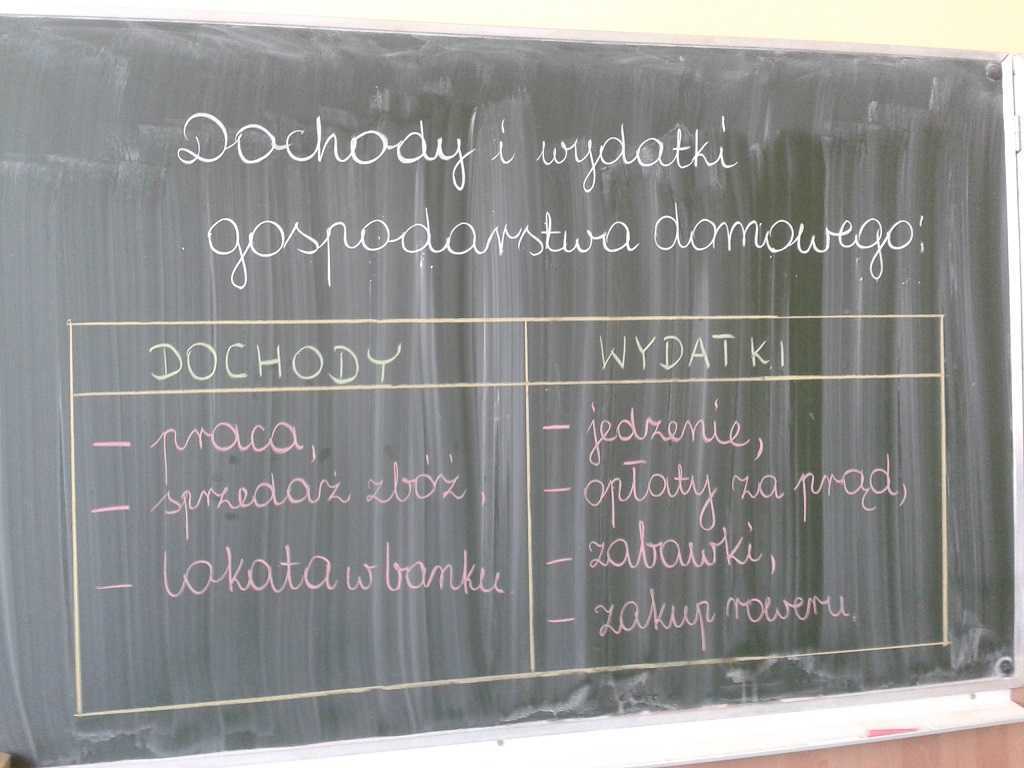 Dochody i wydatki
gospodarstwa domowego:
DOCHODY
– praca,
– sprzedaż zbóż,
– lokata w banku.
WYDATKI
– jedzenie,
– opłaty za prąd,
– zabawki,
– zakup roweru.